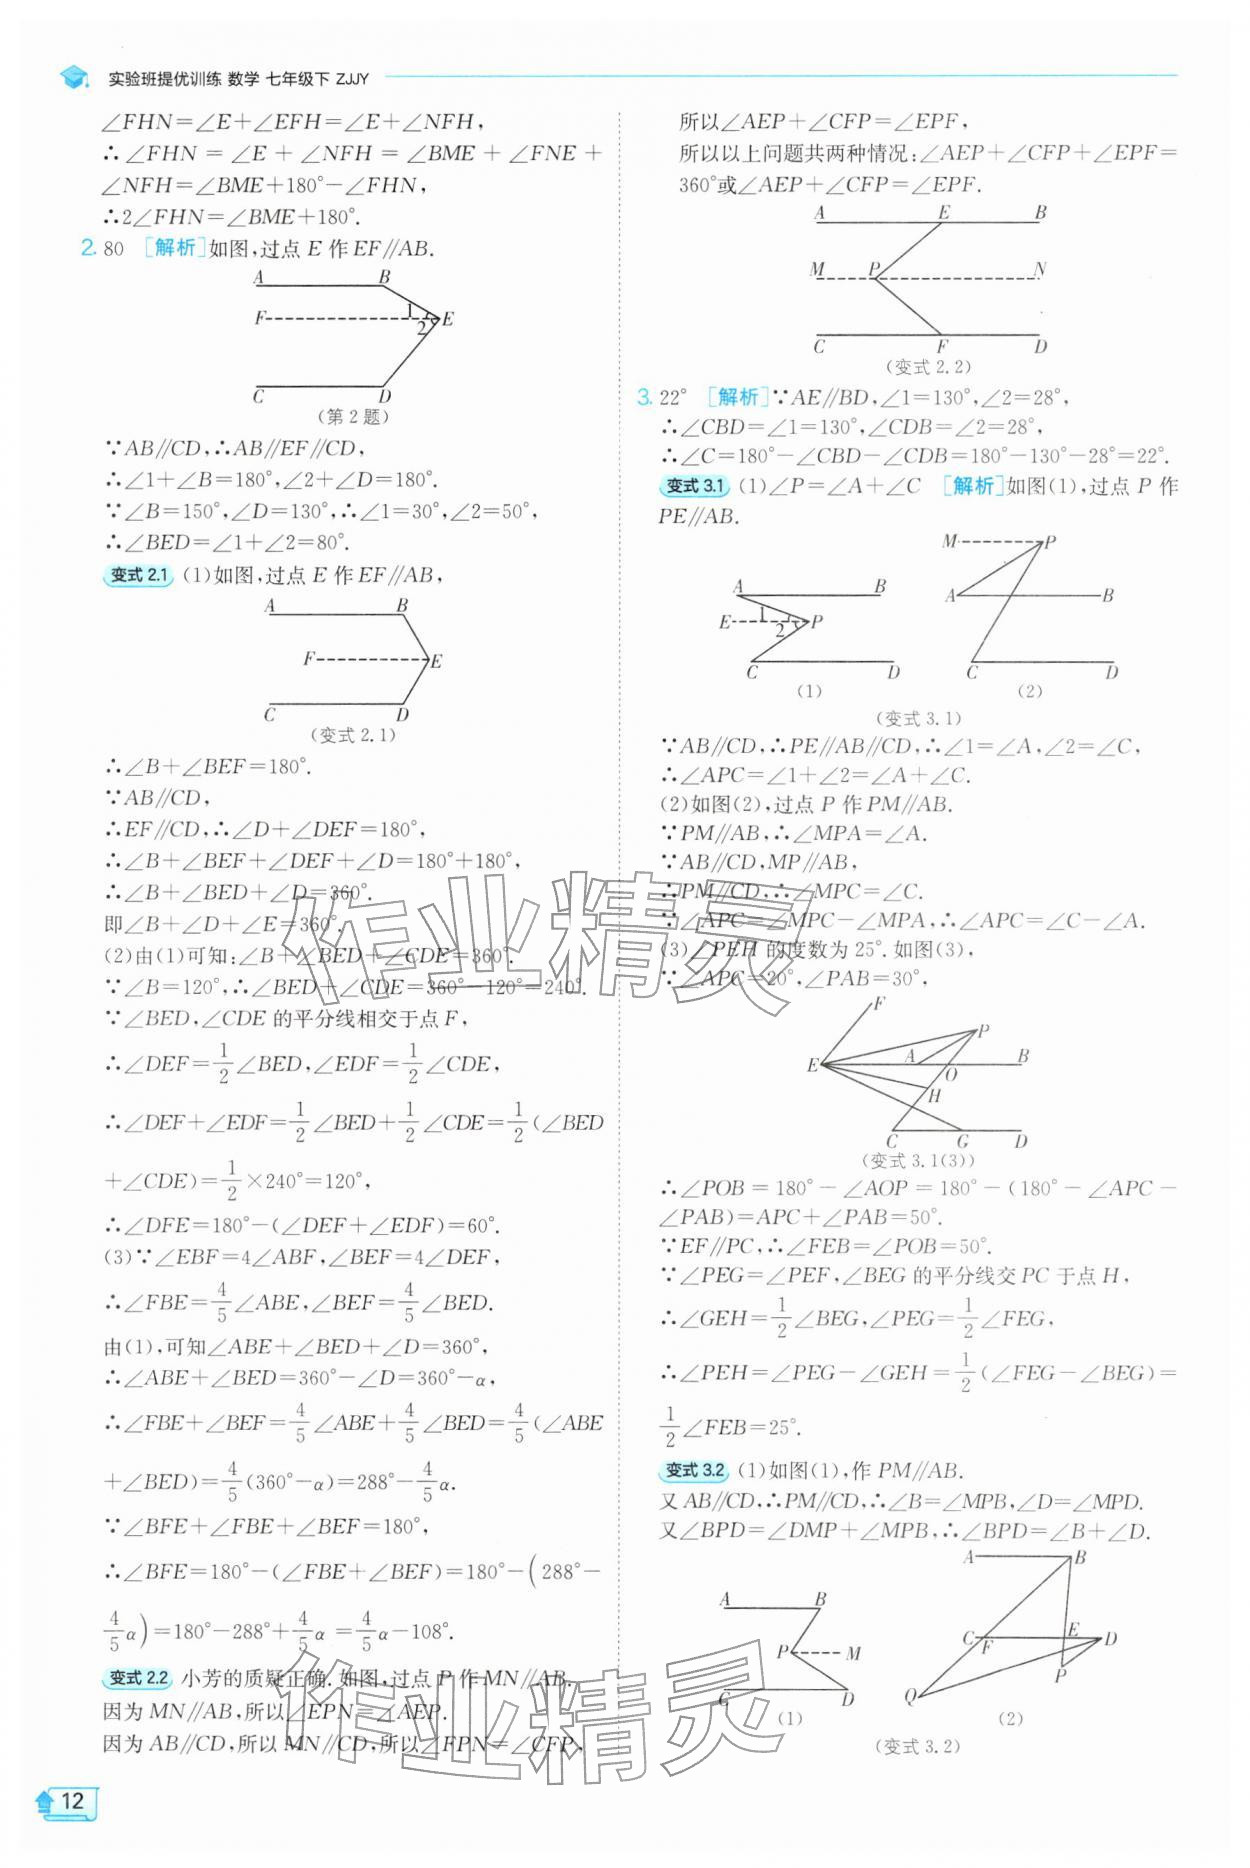 实验班提优训练 数学 七年级下 ZJJY
∠FHN=∠E+∠EFH=∠E+∠NFH,
∴∠FHN=∠E+∠NFH=∠BME+∠FNE+
∠NFH=∠BME+180°-∠FHN,
∴2∠FHN=∠BME+180°.
2. 80 [解析]如图,过点 E 作 EF∥AB.
A B
F 1 2 E
C D
(第 2 题)
∵AB∥CD,∴AB∥EF∥CD,
∴∠1+∠B=180°,∠2+∠D=180°.
∵∠B=150°,∠D=130°,∴∠1=30°,∠2=50°,
∴∠BED=∠1+∠2=80°.
变式 2.1 (1)如图,过点 E 作 EF∥AB,
A B
F E
C D
(变式 2.1)
∴∠B+∠BEF=180°.
∵AB∥CD,
∴EF∥CD,∴∠D+∠DEF=180°,
∴∠B+∠BEF+∠DEF+∠D=180°+180°,
∴∠B+∠BED+∠D=360°.
即∠B+∠D+∠E=360°.
(2)由(1)可知:∠B+∠BED+∠CDE=360°.
∵∠B=120°,∴∠BED+∠CDE=360°-120°=240°.
∵∠BED,∠CDE 的平分线相交于点 F,
∴∠DEF=1/2∠BED,∠EDF=1/2∠CDE,
∴∠DEF+∠EDF=1/2∠BED+1/2∠CDE=1/2(∠BED
+∠CDE)=1/2×240°=120°,
∴∠DFE=180°-(∠DEF+∠EDF)=60°.
(3)∵∠EBF=4∠ABF,∠BEF=4∠DEF,
∴∠FBE=4/5∠ABE,∠BEF=4/5∠BED.
由(1),可知∠ABE+∠BED+∠D=360°,
∴∠ABE+∠BED=360°-∠D=360°-α,
∴∠FBE+∠BEF=4/5∠ABE+4/5∠BED=4/5(∠ABE
+∠BED)=4/5(360°-α)=288°-4/5α.
∵∠BFE+∠FBE+∠BEF=180°,
∴∠BFE=180°-(∠FBE+∠BEF)=180°-(288°-
4/5α)=180°-288°+4/5α=4/5α-108°.
变式 2.2 小芳的质疑正确.如图,过点 P 作 MN∥AB.
因为 MN∥AB,所以∠EPN=∠AEP.
因为 AB∥CD,所以 MN∥CD,所以∠FPN=∠CFP,
12
所以∠AEP+∠CFP=∠EPF,
所以以上问题共两种情况:∠AEP+∠CFP+∠EPF=
360°或∠AEP+∠CFP=∠EPF.
A E B
M P N
C F D
(变式 2.2)
3. 22° [解析]∵AE∥BD,∠1=130°,∠2=28°,
∴∠CBD=∠1=130°,∠CDB=∠2=28°,
∴∠C=180°-∠CBD-∠CDB=180°-130°-28°=22°.
变式 3.1 (1)∠P=∠A+∠C [解析]如图(1),过点 P 作
PE∥AB.
A B
E 1 2 P
C D
(1)
M P
A B
C D
(2)
(变式 3.1)
∵AB∥CD,∴PE∥AB∥CD,∴∠1=∠A,∠2=∠C,
∴∠APC=∠1+∠2=∠A+∠C.
(2)如图(2),过点 P 作 PM∥AB.
∵PM∥AB,∴∠MPA=∠A.
∵AB∥CD,MP∥AB,
∴PM∥CD,∴∠MPC=∠C.
∵∠APC=∠MPC-∠MPA,∴∠APC=∠C-∠A.
(3)∠PEH 的度数为 25°.如图(3),
∵∠APC=20°,∠PAB=30°,
F
P
E A O B
H
C G D
(变式 3.1(3))
∴∠POB=180°-∠AOP=180°-(180°-∠APC-
∠PAB)=APC+∠PAB=50°.
∵EF∥PC,∴∠FEB=∠POB=50°.
∵∠PEG=∠PEF,∠BEG 的平分线交 PC 于点 H,
∴∠GEH=1/2∠BEG,∠PEG=1/2∠FEG,
∴∠PEH=∠PEG-∠GEH=1/2(∠FEG-∠BEG)=
1/2∠FEB=25°.
变式 3.2 (1)如图(1),作 PM∥AB.
又 AB∥CD,∴PM∥CD,∴∠B=∠MPB,∠D=∠MPD.
又∠BPD=∠DMP+∠MPB,∴∠BPD=∠B+∠D.
A B
P M
C D
(1)
A B
C F E D
P
Q
(2)
(变式 3.2)
作业精灵
作业精灵